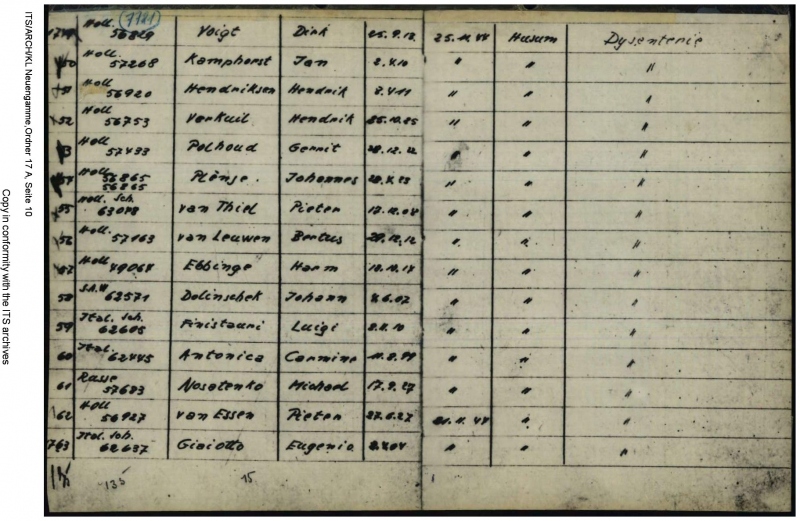 ITS/ARCH/KL Neuengamme, Ordner 17 A, Seite 10
Copy in conformity with the ITS archives
(7721)
Holl. 56829 Voigt Dirk 25.9.13. 25.11.44 Husum Dysenterie
50 Holl. 57268 Kamphorst Jan 2.4.10 " " "
51 Holl 56920 Hendriksen Hendrik 2.4.11 " " "
52 Holl 56753 Verkuil Hendrik 25.10.25 " " "
53 Holl 57433 Polhoud Gerrit 28.12.22 " " "
Holl 56865 56865 Plönje. Johannes 28.4.23 " " "
55 Holl. Sch. 63078 van Thiel Pieter 17.12.04 " " "
56 Holl. 57163 van Leuwen Bertus 29.12.12 " " "
57 Holl 49064 Ebbinge Harm 18.10.14 " " "
58 62571 Dolinschek Johann 4.6.02 " " "
59 Ital. Sch. 62605 Finistauri Luigi 8.4.10 " " "
60 Ital. 62445 Antonica Carmine 11.8.99 " " "
61 Russe 57683 Nosatenko Michael 17.9.27 " " "
62 Holl 56927 van Essen Pieter 27.6.27 21.11.44 " "
63 Ital. Sch. 62637 Giaiotto Eugenio 2.4.04 " " "
135 15